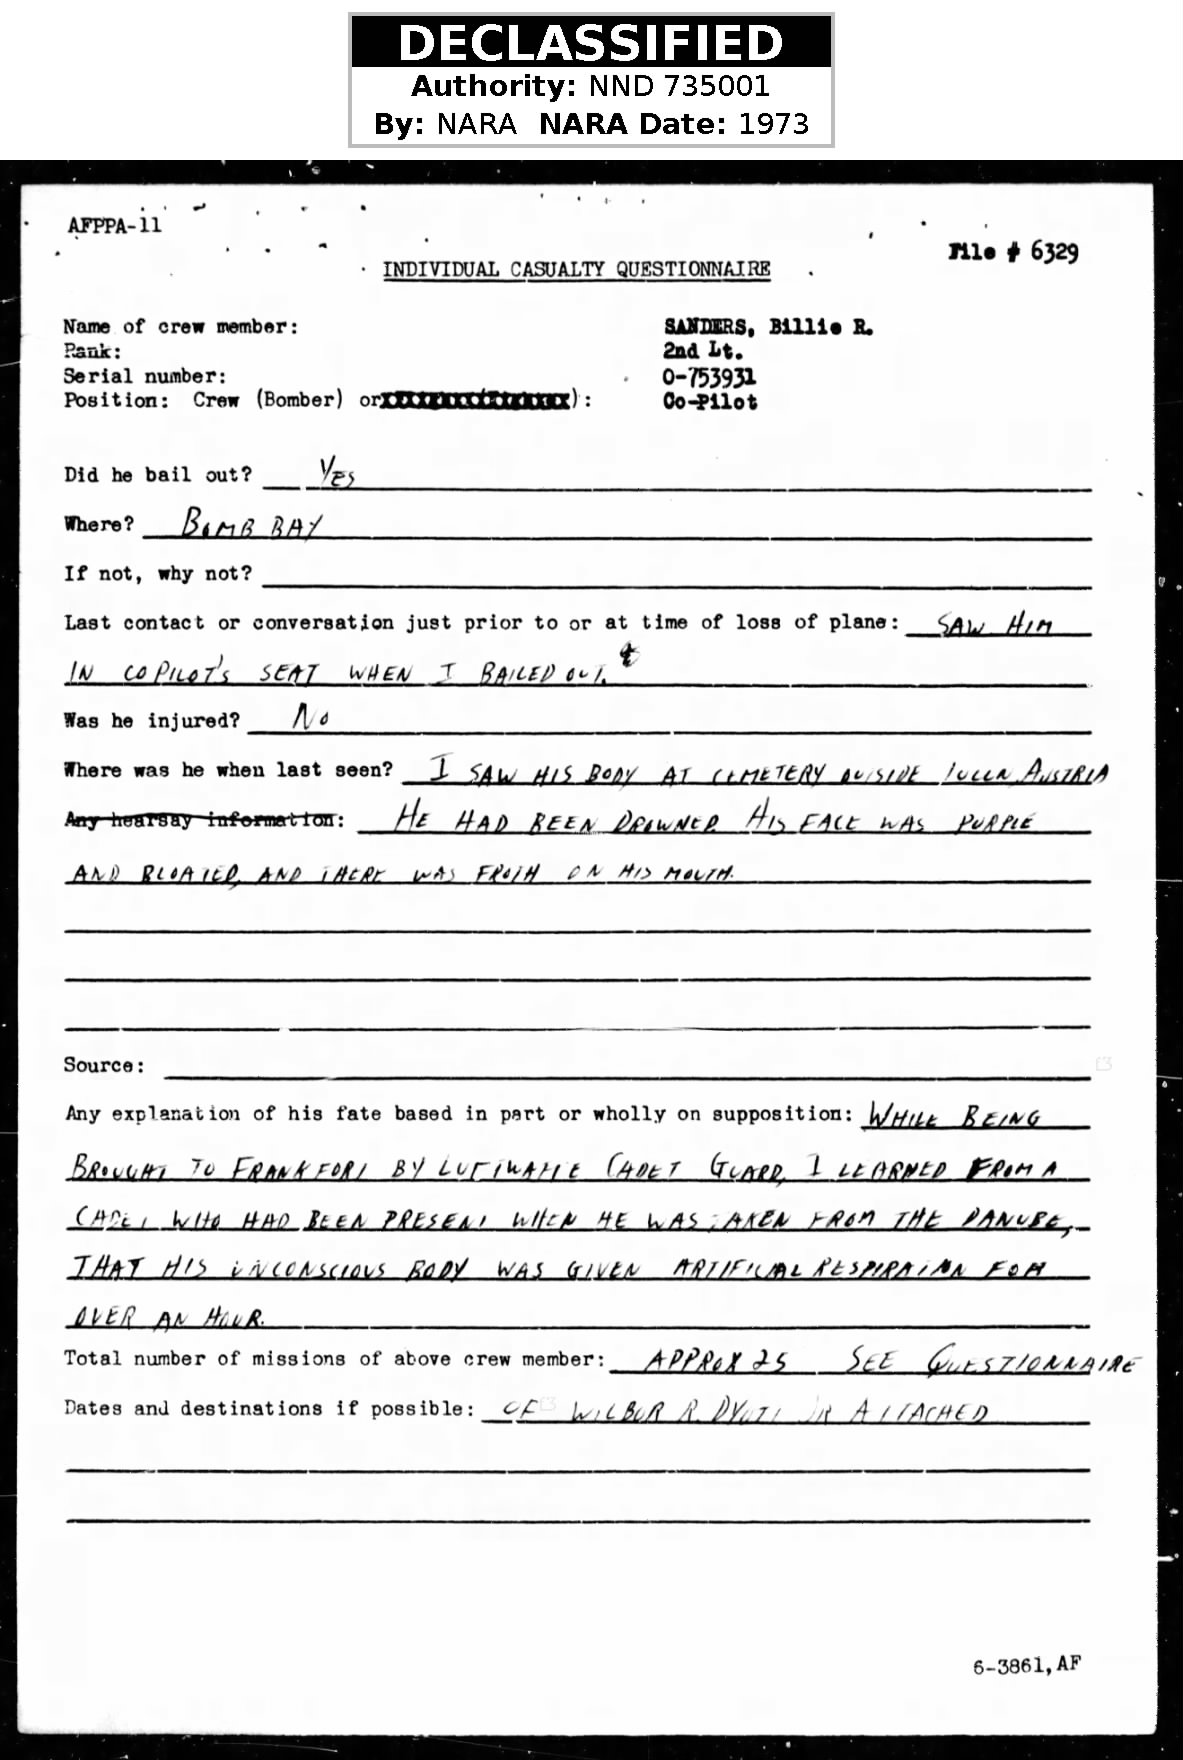 DECLASSIFIED
Authority: NND 735001
By: NARA NARA Date: 1973
AFPPA-11
File # 6329
INDIVIDUAL CASUALTY QUESTIONNAIRE
Name of crew member: SANDERS, Billie R.
Rank: 2nd Lt.
Serial number: O-753931
Position: Crew (Bomber) or ): Co-Pilot
Did he bail out? YES
Where? BOMB BAY
If not, why not?
Last contact or conversation just prior to or at time of loss of plane: SAW HIM
IN COPILOT'S SEAT WHEN I BAILED OUT.
Was he injured? NO
Where was he when last seen? I SAW HIS BODY AT CEMETERY OUTSIDE TULLN, AUSTRIA
Any hearsay information: HE HAD BEEN DROWNED. HIS FACE WAS PURPLE
AND BLOATED, AND THERE WAS FROTH ON HIS MOUTH.
Source:
Any explanation of his fate based in part or wholly on supposition: WHILE BEING
BROUGHT TO FRANKFORT BY LUFTWAFFE CADET GUARD, I LEARNED FROM A
CADET WHO HAD BEEN PRESENT WHEN HE WAS TAKEN FROM THE DANUBE,
THAT HIS UNCONSCIOUS BODY WAS GIVEN ARTIFICIAL RESPIRATION FOR
OVER AN HOUR.
Total number of missions of above crew member: APPROX 25 SEE QUESTIONNAIRE
Dates and destinations if possible: OF WILBUR R. JR ATTACHED
6-3861, AF